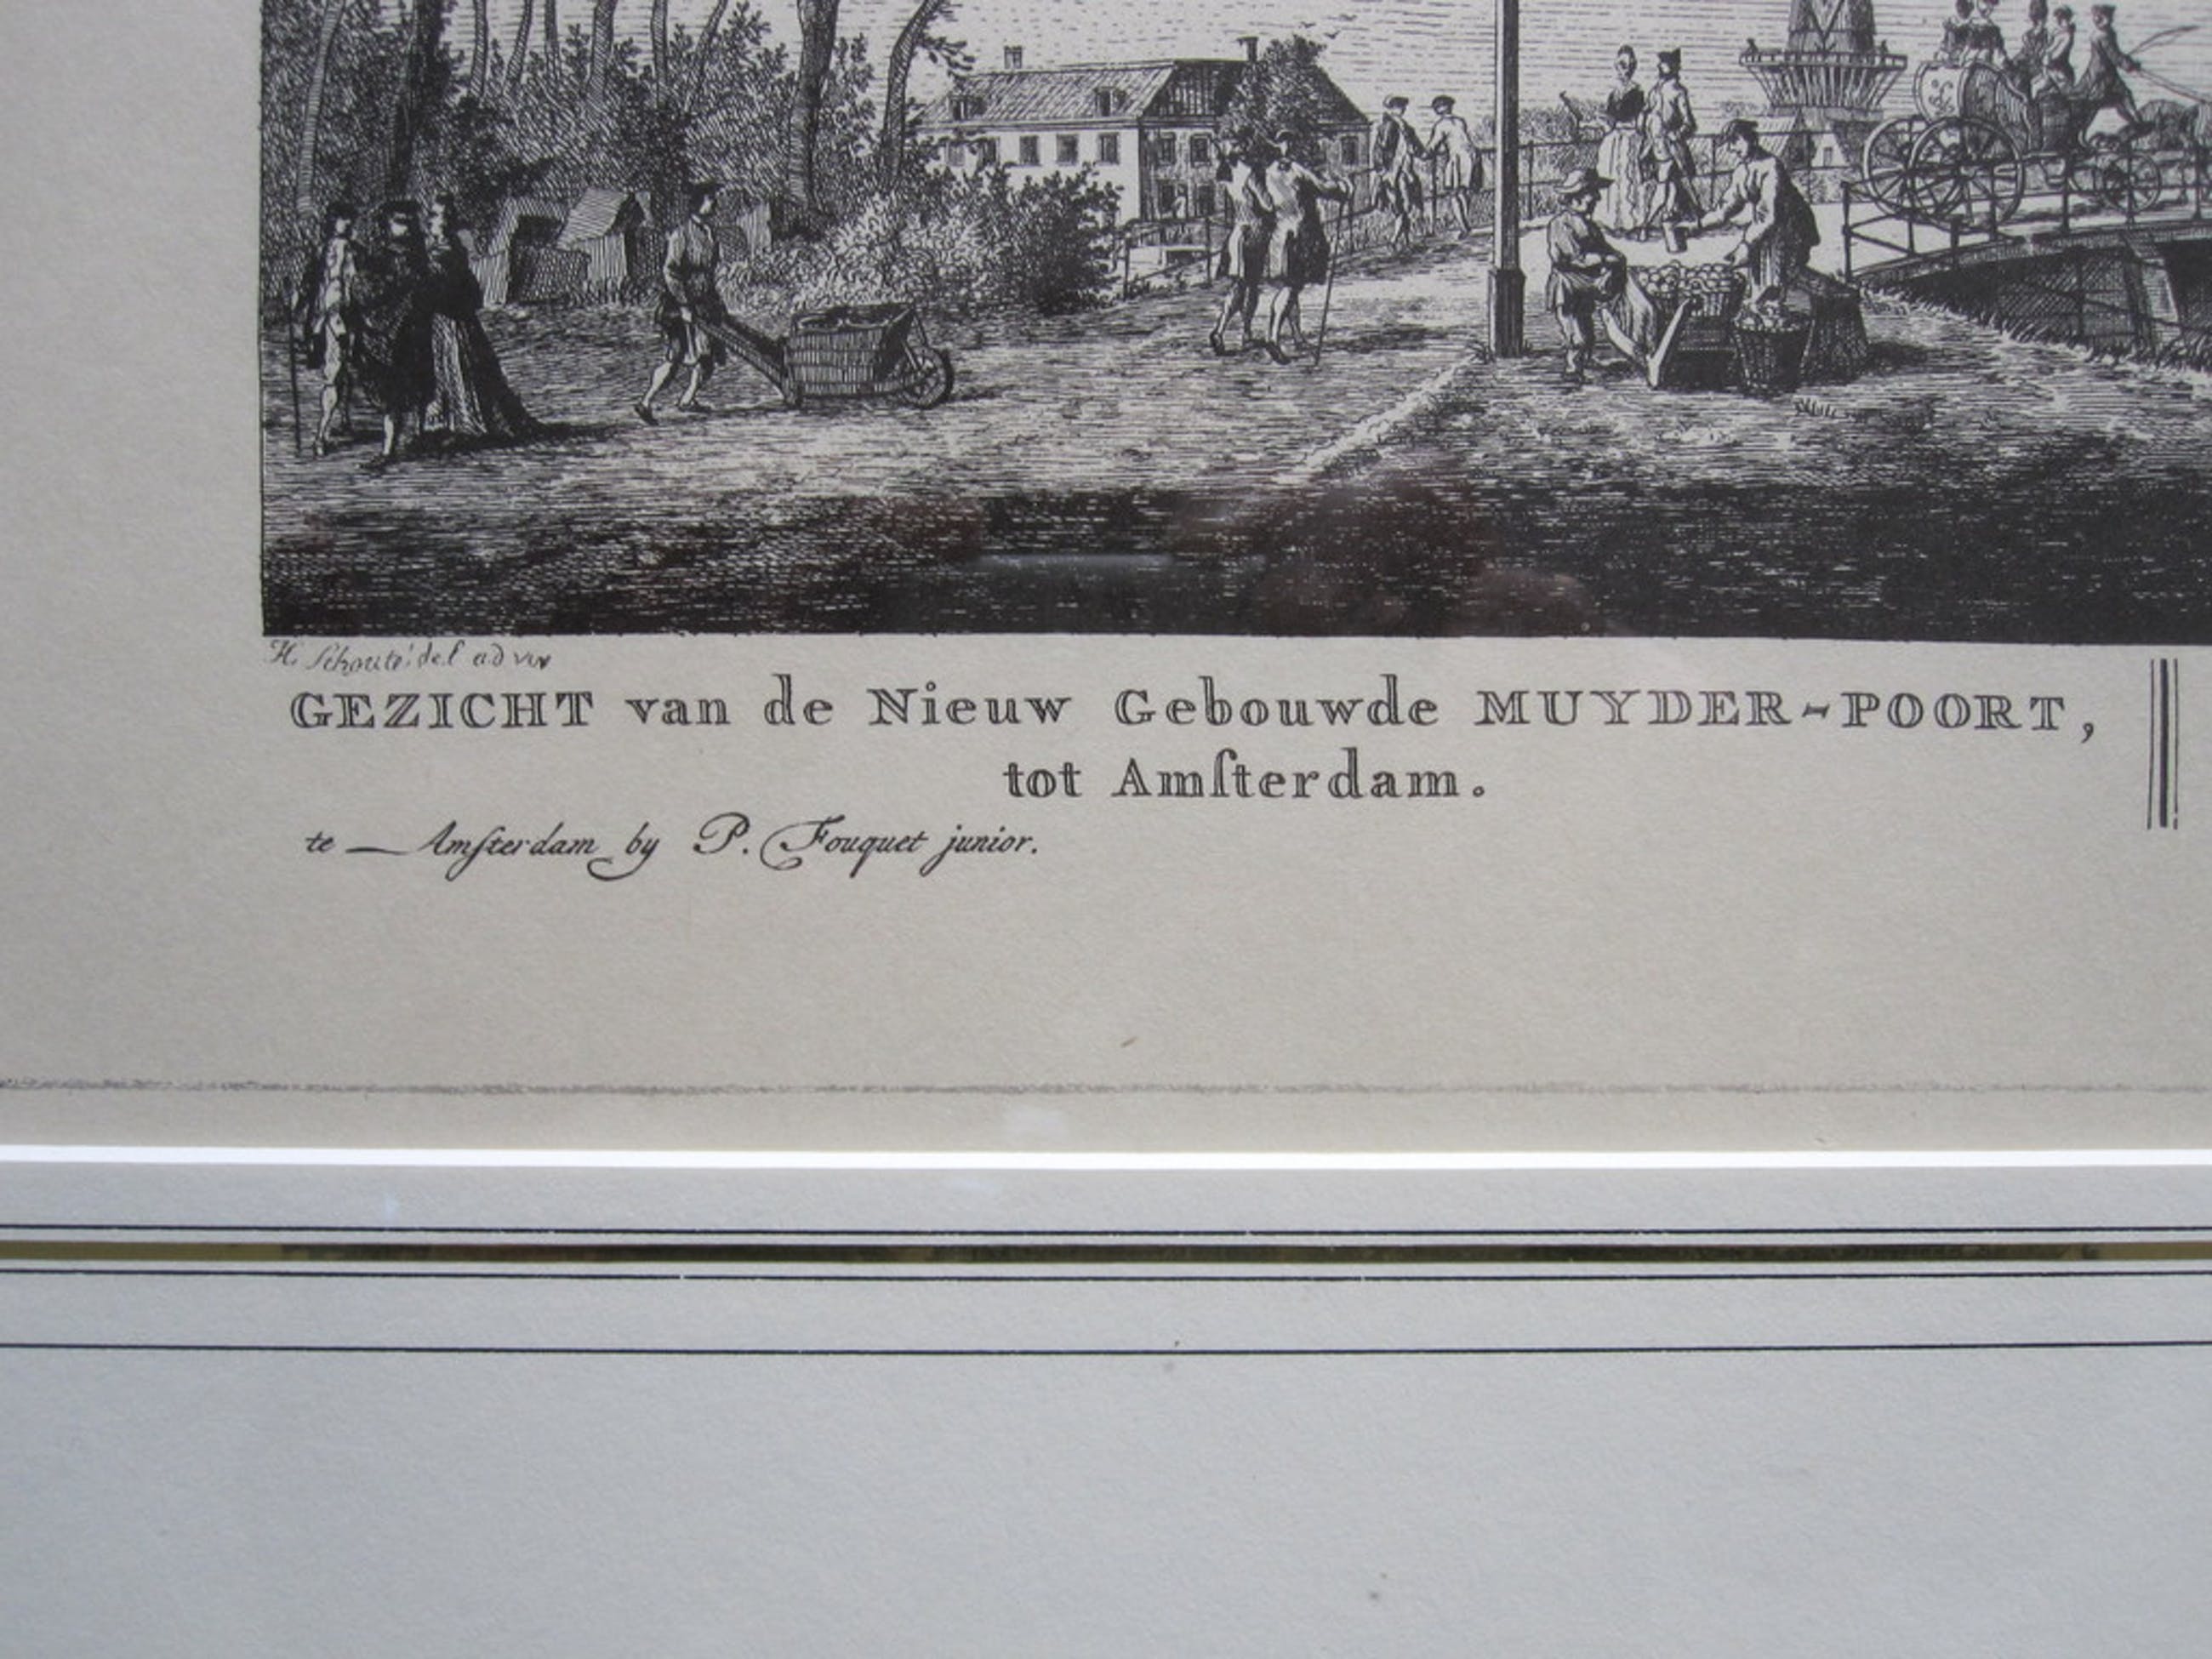 H. Schoute' del ad viv
GEZICHT van de Nieuw Gebouwde MUYDER-POORT,
tot Amſterdam.
te — Amſterdam by P. Fouquet junior.